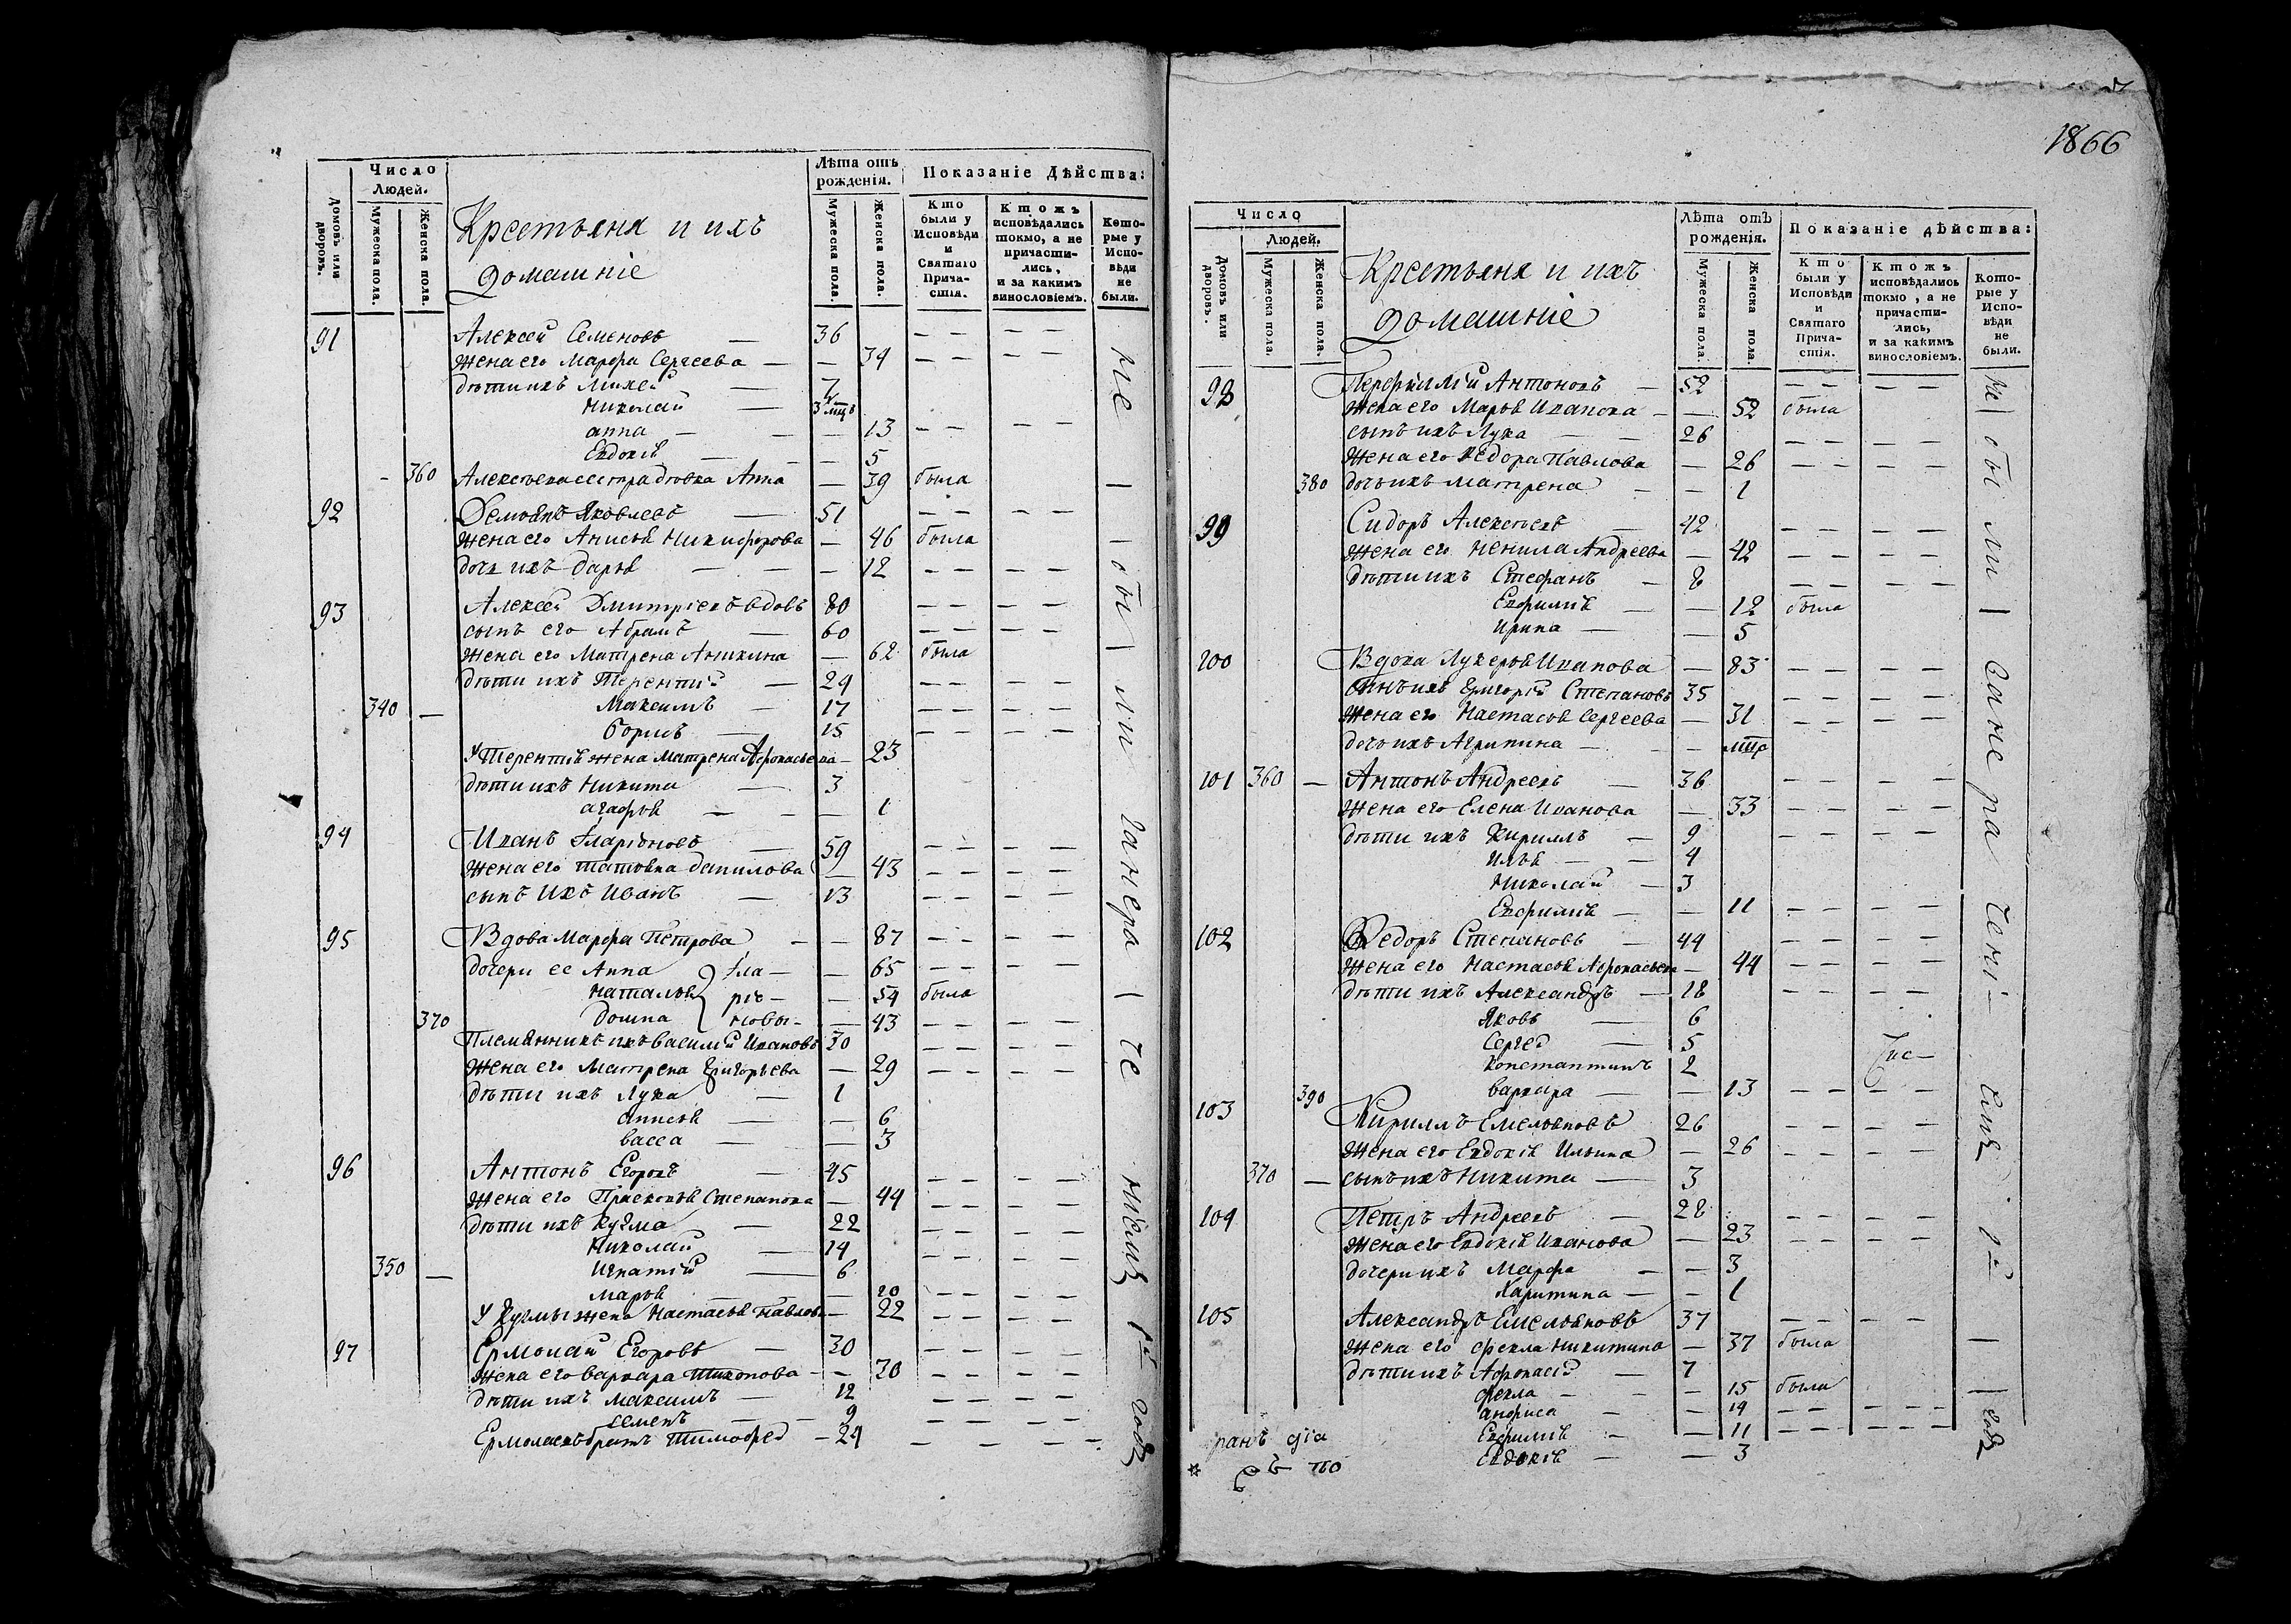 Число Людей.
Лѣта отъ рожденія.
Показаніе Дѣйства:
Домовъ или дворовъ.
Мужеска пола.
Женска пола.
Крестьяня и ихъ
домашніе
Мужеска пола.
Женска пола.
Кто были у Исповѣди и Святаго Причастія.
Ктожъ исповѣдались токмо, а не причастились, и за какимъ винословіемъ.
Которые у Исповѣди не были.
91 Алексей Семеновъ — 36
жена его Марфа Сергеева — — 34
дѣти ихъ Михей — 7
Николай — 3 мцъ
анна — — 13
Евдокія — — 5
360 Алексѣева сестра дѣвка Анна — 39 была
92 Демьянъ Яковлевъ — 51
жена его Анисья Никифорова — 46 была
дочь ихъ дарья — — 12
93 Алексей Дмитріевъ вдовъ 80
сынъ его Абрамъ — 60
жена его Матрена Аникина — 62 была
дѣти ихъ Терентій — 29
340 — Максимъ — 17
борисъ — 15
У Терентія жена Матрена Афонасьева — 23
дѣти ихъ Никита — 3
агафья — — 1
94 Иванъ Иларіоновъ — 59
жена его татьяна данилова — 43
сынъ ихъ Иванъ — 13
95 Вдова Марфа Петрова — — 87
дочери ее Анна } Ила — — 65
наталья }ріо — — 54 была
370 домна } новы — — 43
Племянникъ ихъ василій Ивановъ 30
жена его Матрена Григорьева — 29
дѣти ихъ Лука — 1
аннисья — — 6
васса — — 3
96 Антонъ Егоровъ — 45
жена его Прасковья Степанова — 44
дѣти ихъ Кузма — 22
Николай — 14
350 — Игнатій — 6
марья — — 20
У Кузмы жена Настасья Павлова — 22
97 Ермолай Егоровъ — 30
жена его варвара Тихонова — — 30
дѣти ихъ максимъ — 12
семенъ — 9
Ермолаевъ братъ Тимофей — 24
не были
1866
Число Людей.
Лѣта отъ рожденія.
Показаніе дѣйства:
Домовъ или дворовъ.
Мужеска пола.
Женска пола.
Крестьяня и ихъ
домашніе
Мужеска пола.
Женска пола.
Кто были у Исповѣди и Святаго Причастія.
Ктожъ исповѣдались токмо, а не причастились, и за какимъ винословіемъ.
Которые у Исповѣди не были.
98 Перфилій Антоновъ — 52
жена его Марья Иванова — — 52 была
сынъ ихъ Лука — — 26
жена его Ѳедора Павлова — 26
380 дочь ихъ матрена — — 1
99 Сидоръ Алексѣевъ — 42
жена его Ненила Андреева — 42
дѣти ихъ Стефанъ — 8
Евфимія — — 12 была
Ирина — — 5
100 Вдова Лукерья Иванова — 83
сынъ ихъ Григорій Степановъ 35
жена его Настасья Сергеева — 31
дочь ихъ Агрипина — —
101 360 — Антонъ Андреевъ — 36
жена его Елена Иванова — 33
дѣти ихъ Кирилъ — 9
Илья — — 4
Николай — 3
Евфимія — — 11
102 Федоръ Степановъ — 44
жена его Настасья Афонасьева — 44
дѣти ихъ Александръ — 18
Яковъ — 6
Сергей — 5
Константинъ 2
390 варвара — — 13
103 Кирилъ Емельяновъ 26
жена его Евдокія Ильина — 26
370 — сынъ ихъ Никита — 3
104 Петръ Андреевъ — 28
жена его Евдокія Иванова — 23
дочери ихъ Марфа — — 3
Харитина — — 1
105 Александръ Емельяновъ 37
жена его фекла Никитина — 37 была
дѣти ихъ Афонасій — 7
фекла — — 15 была
анфиса — — 14
Евфимія — — 11
Евдокія — — 3